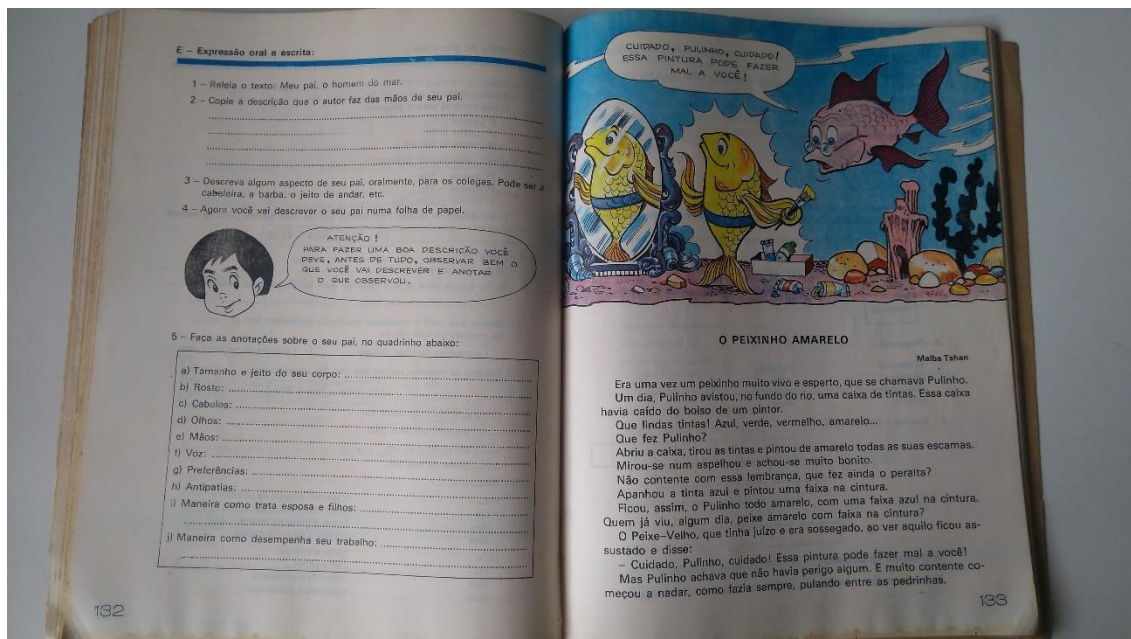 E – Expressão oral e escrita:
1 – Releia o texto: Meu pai, o homem do mar.
2 – Copie a descrição que o autor faz das mãos de seu pai.
3 – Descreva algum aspecto de seu pai, oralmente, para os colegas. Pode ser a
cabeleira, a barba, o jeito de andar, etc.
4 – Agora você vai descrever o seu pai numa folha de papel.
ATENÇÃO !
PARA FAZER UMA BOA DESCRIÇÃO VOCÊ
DEVE, ANTES DE TUDO, OBSERVAR BEM O
QUE VOCÊ VAI DESCREVER E ANOTAR
O QUE OBSERVOU.
5 – Faça as anotações sobre o seu pai, no quadrinho abaixo:
a) Tamanho e jeito do seu corpo:
b) Rosto:
c) Cabelos:
d) Olhos:
e) Mãos:
f) Voz:
g) Preferências:
h) Antipatias:
i) Maneira como trata esposa e filhos:
j) Maneira como desempenha seu trabalho:
132
CUIDADO, PULINHO, CUIDADO!
ESSA PINTURA PODE FAZER
MAL A VOCÊ!
O PEIXINHO AMARELO
Malba Tahan
Era uma vez um peixinho muito vivo e esperto, que se chamava Pulinho.
Um dia, Pulinho avistou, no fundo do rio, uma caixa de tintas. Essa caixa
havia caído do bolso de um pintor.
Que lindas tintas! Azul, verde, vermelho, amarelo...
Que fez Pulinho?
Abriu a caixa, tirou as tintas e pintou de amarelo todas as suas escamas.
Mirou-se num espelhou e achou-se muito bonito.
Não contente com essa lembrança, que fez ainda o peralta?
Apanhou a tinta azul e pintou uma faixa na cintura.
Ficou, assim, o Pulinho todo amarelo, com uma faixa azul na cintura.
Quem já viu, algum dia, peixe amarelo com faixa na cintura?
O Peixe-Velho, que tinha juízo e era sossegado, ao ver aquilo ficou as-
sustado e disse:
– Cuidado, Pulinho, cuidado! Essa pintura pode fazer mal a você!
Mas Pulinho achava que não havia perigo algum. E muito contente co-
meçou a nadar, como fazia sempre, pulando entre as pedrinhas.
133